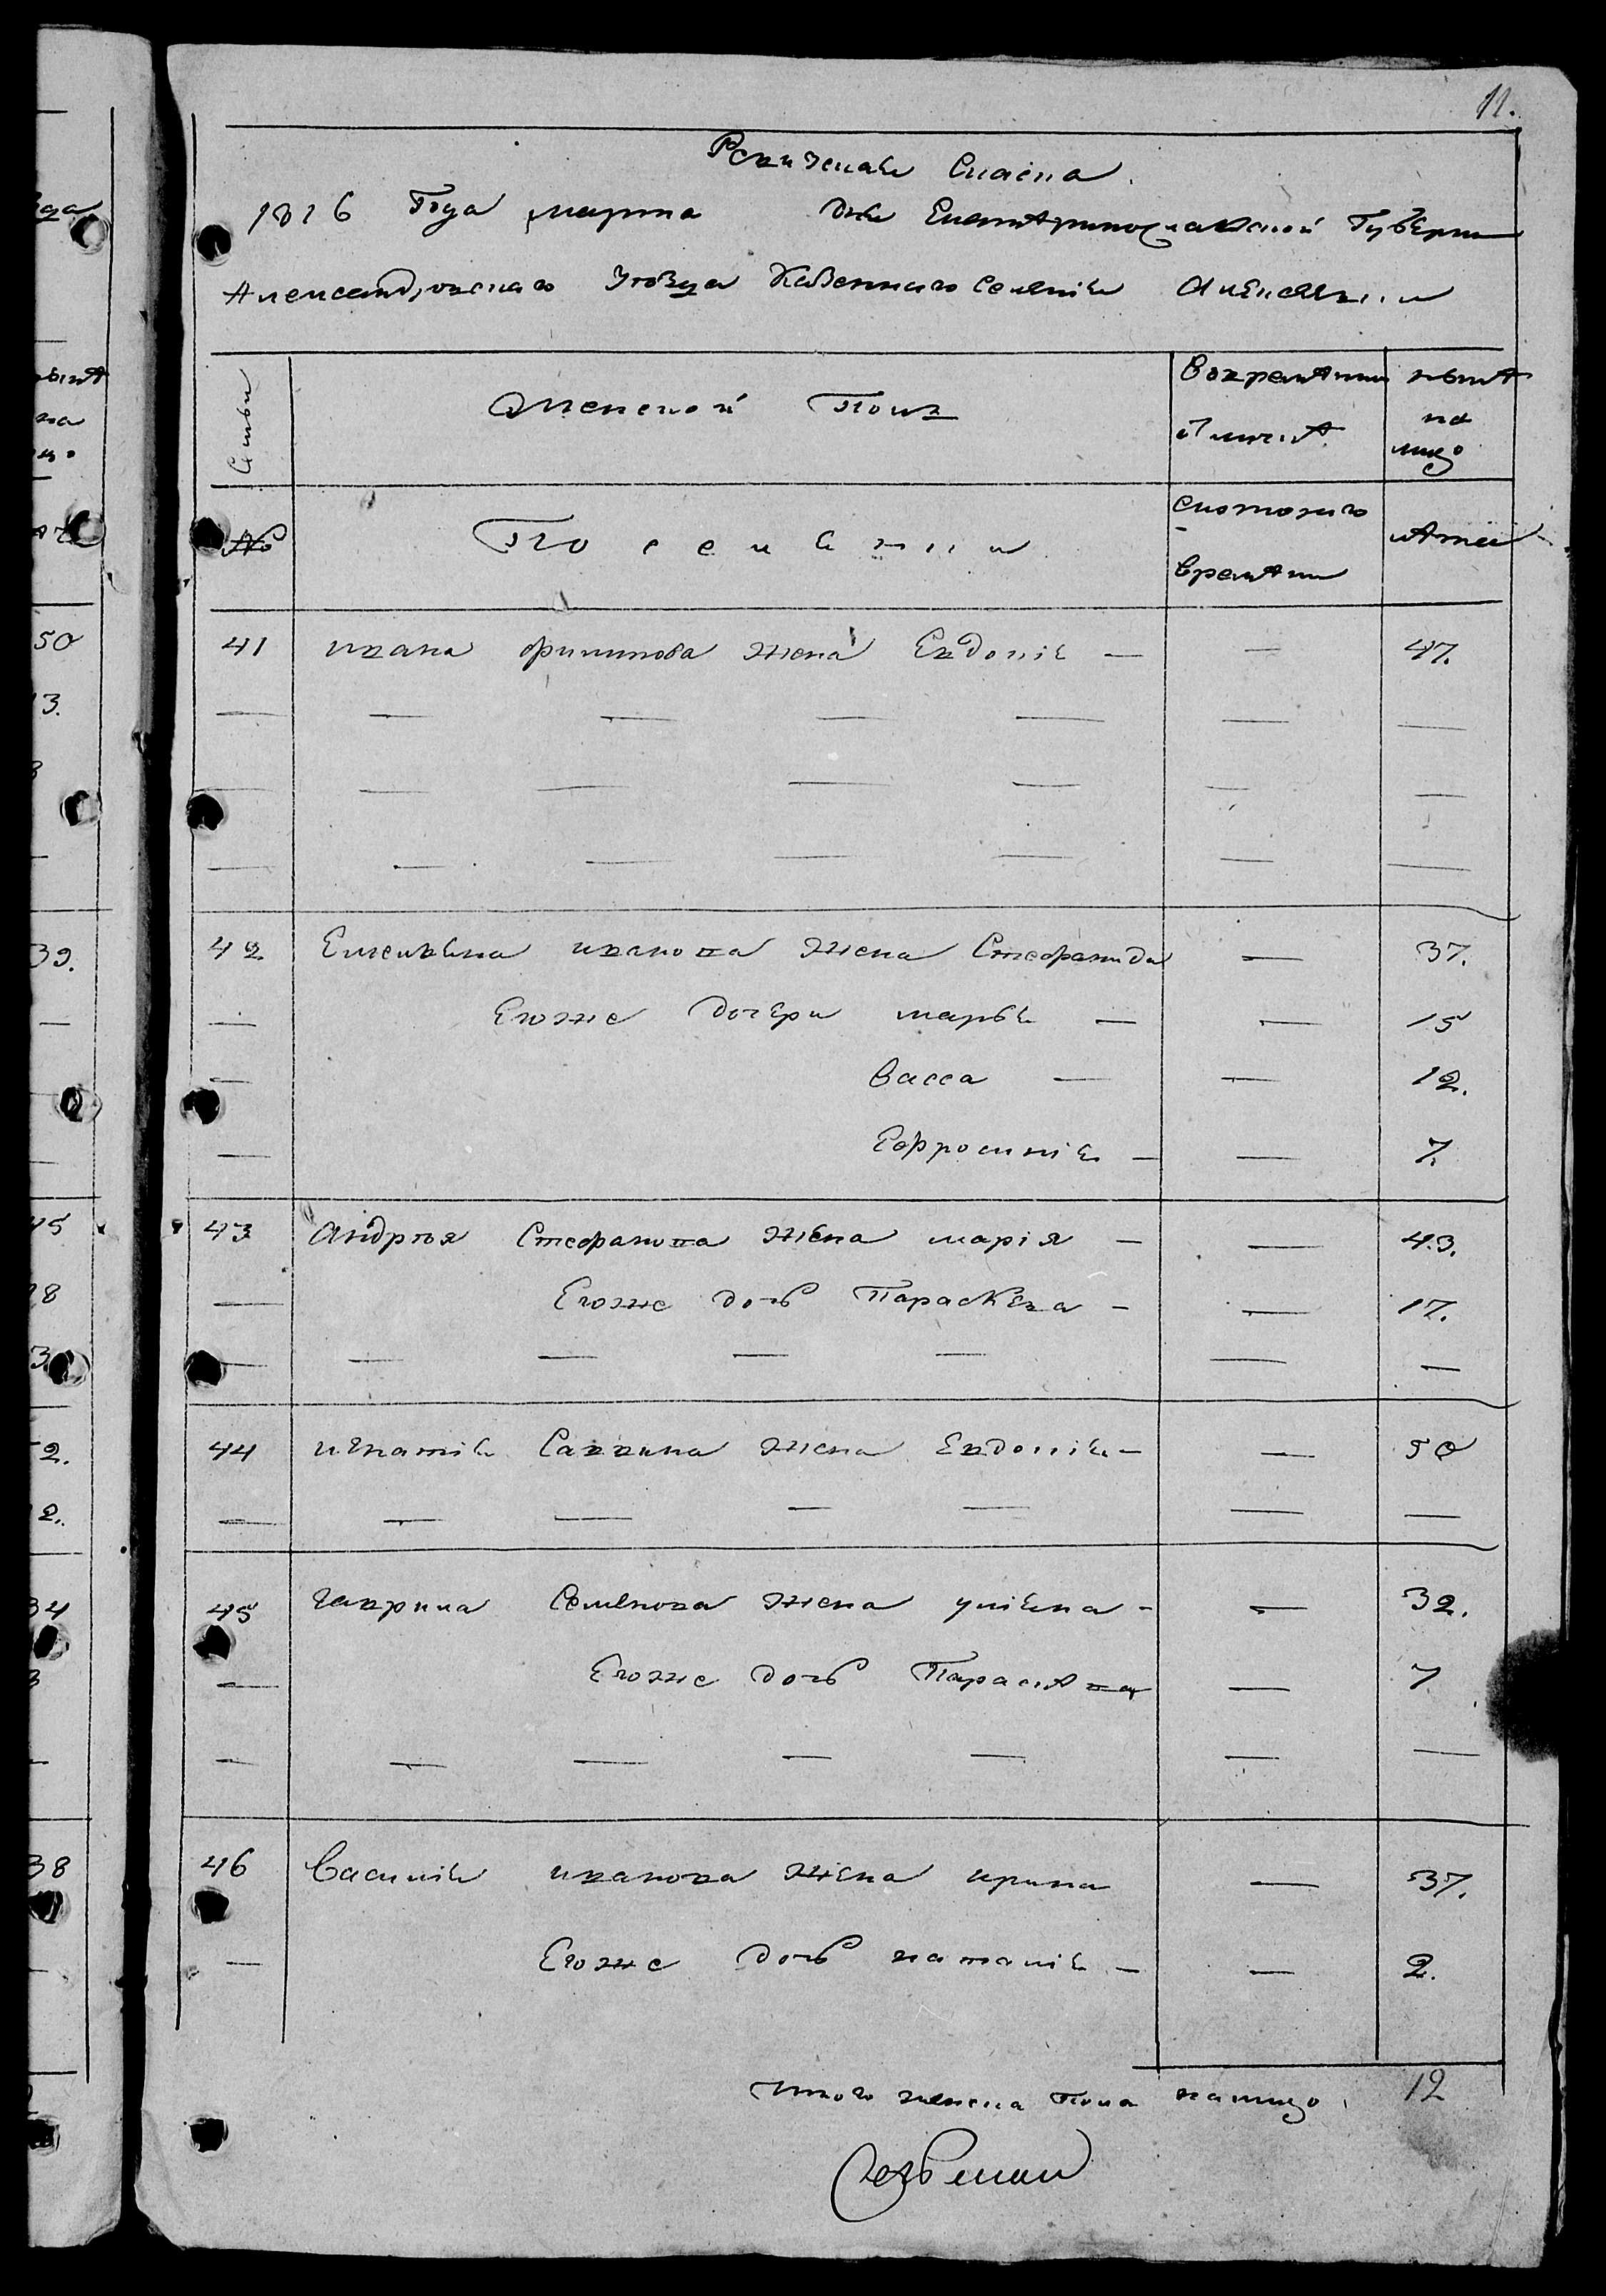 11.
Ревизская Сказка
1816 Года марта дня Екатеринославской Губернии
Александровского Уезда Казенного Селения Алексеевки
Семьи
Женской Пол
Вовременной отлучке
ныне на лицо
№
Поселяни
Скоторого времени
Лета
41 ивана филипова жена Евдокия — — 47.
— — — — — — —
— — — — — — —
— — — — — — —
42 Елисеина иванова жена Стефанида — 37.
— Егоже дочери марья — — 15
— васса — — 12.
— Ефросиния — — 7.
43 Андрѣя Стефанова жена марiя — — 43.
— Егоже дочь Параскева — — 17.
— — — — — — —
44 игнатiя Саввина жена Евдокiя — — 50
— — — — — — —
45 гаврила Семенова жена улiяна — — 32.
— Егоже дочь Параскева — 7
— — — — — — —
46 Василия иванова жена ирина — 37.
— Егоже дочь наталия — — 2.
Итого женска пола налицо 12
50
13.
39.
45
28
34
38